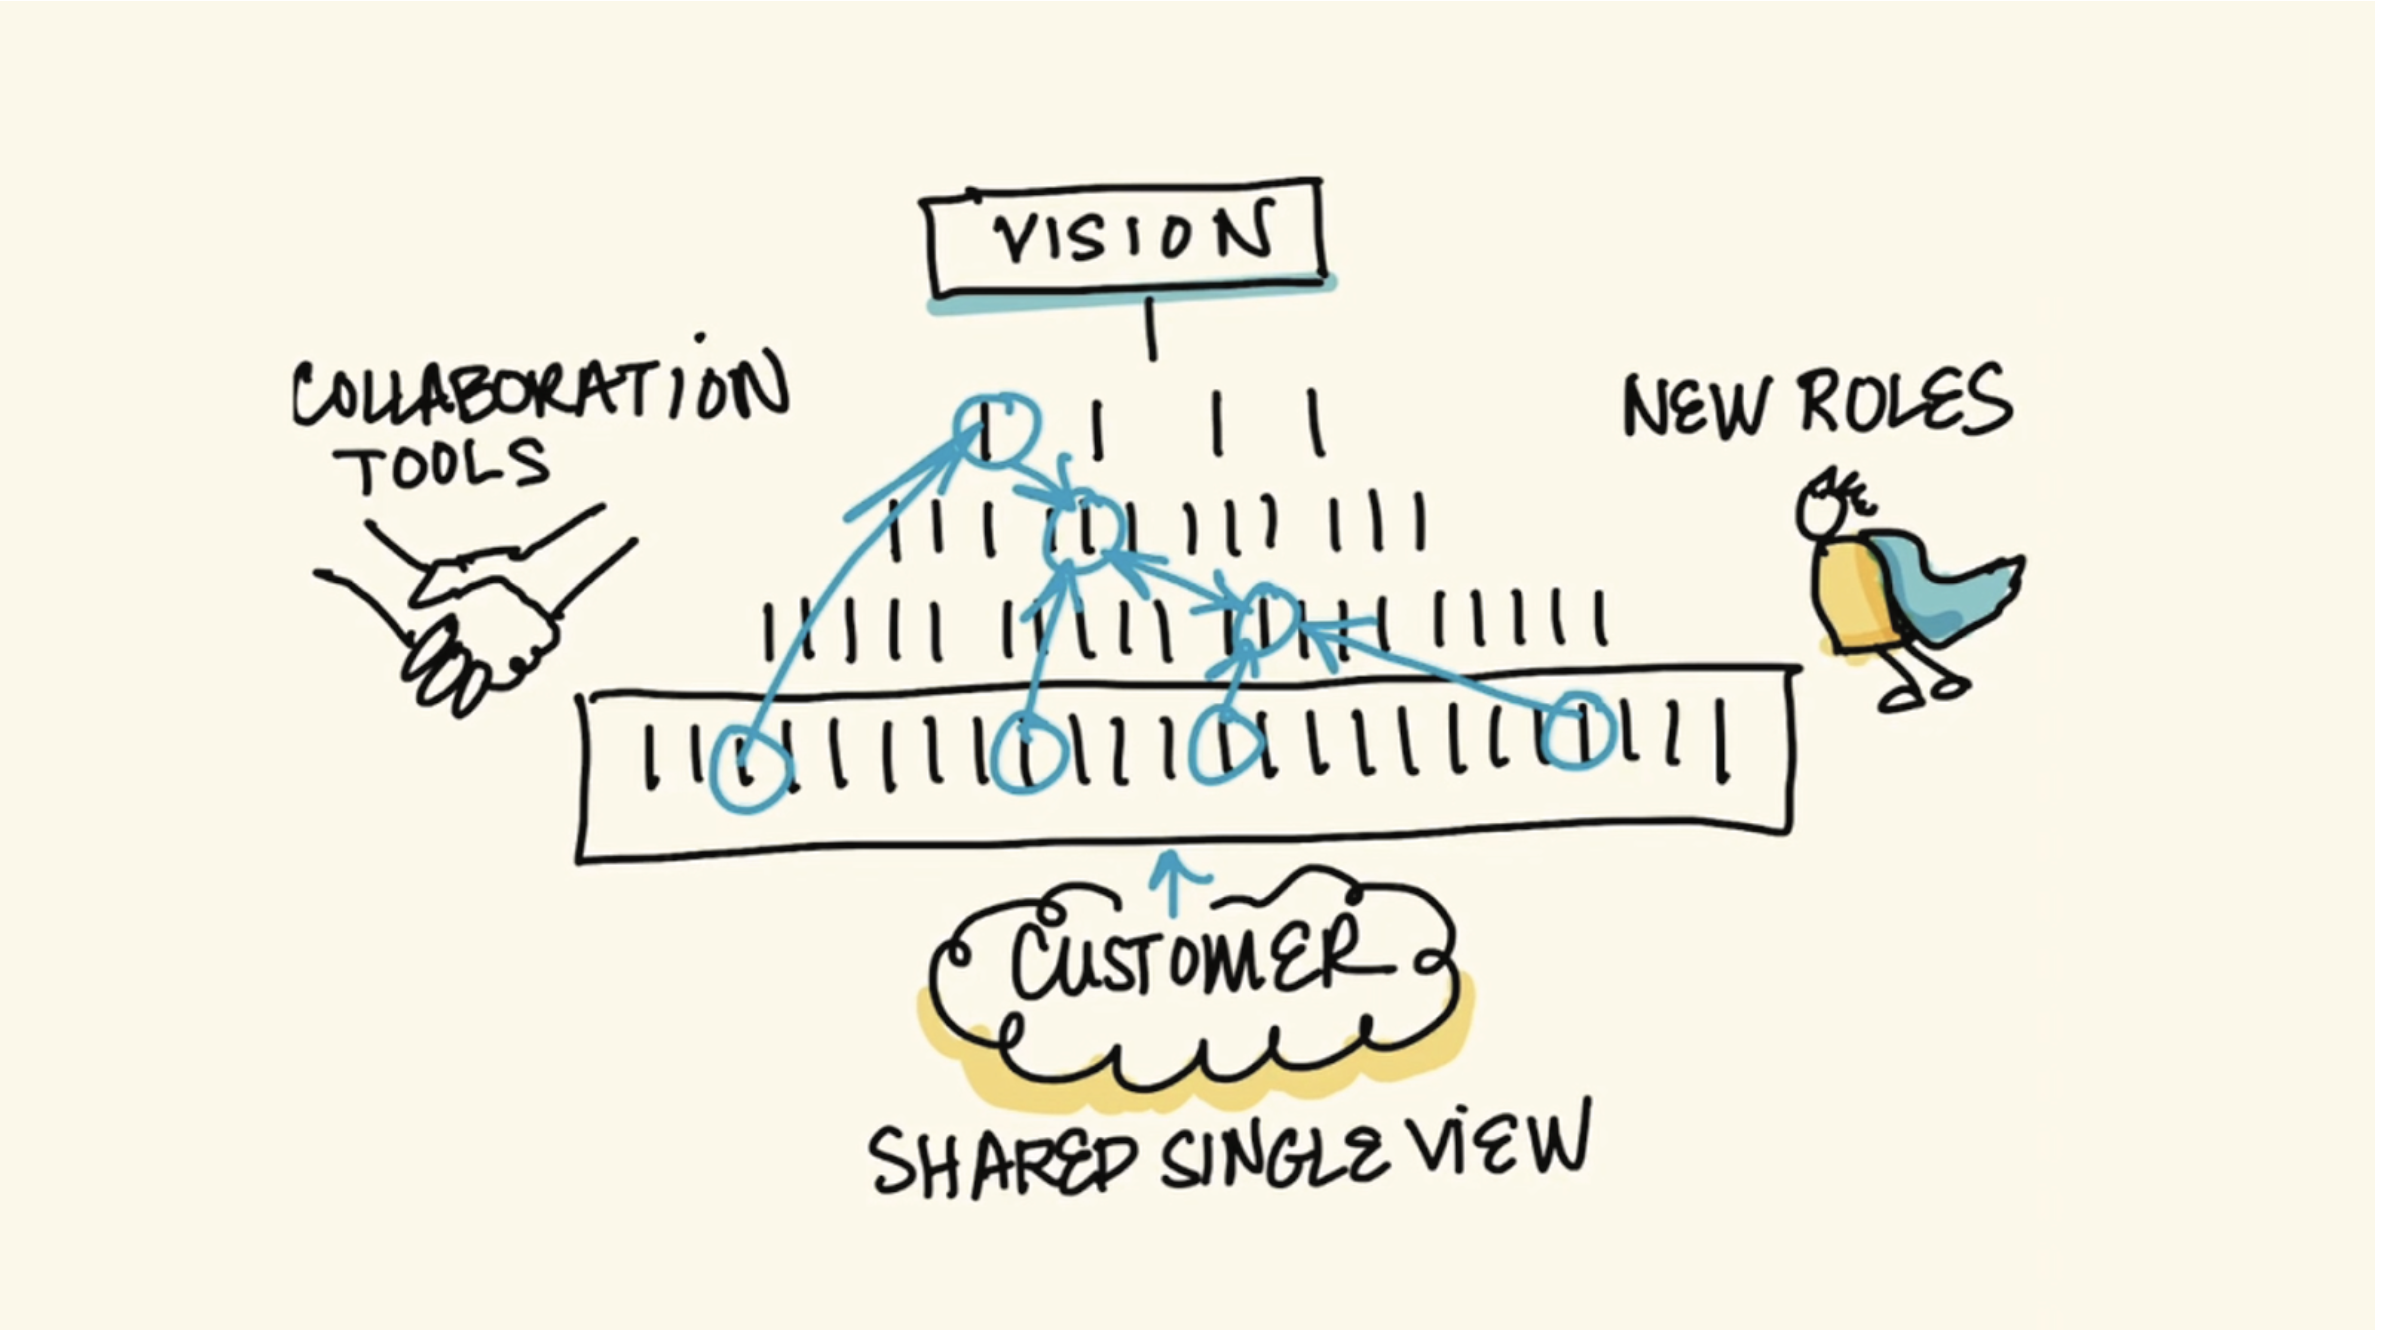 VISION
COLLABORATION
TOOLS
NEW ROLES
CUSTOMER
SHARED SINGLE VIEW